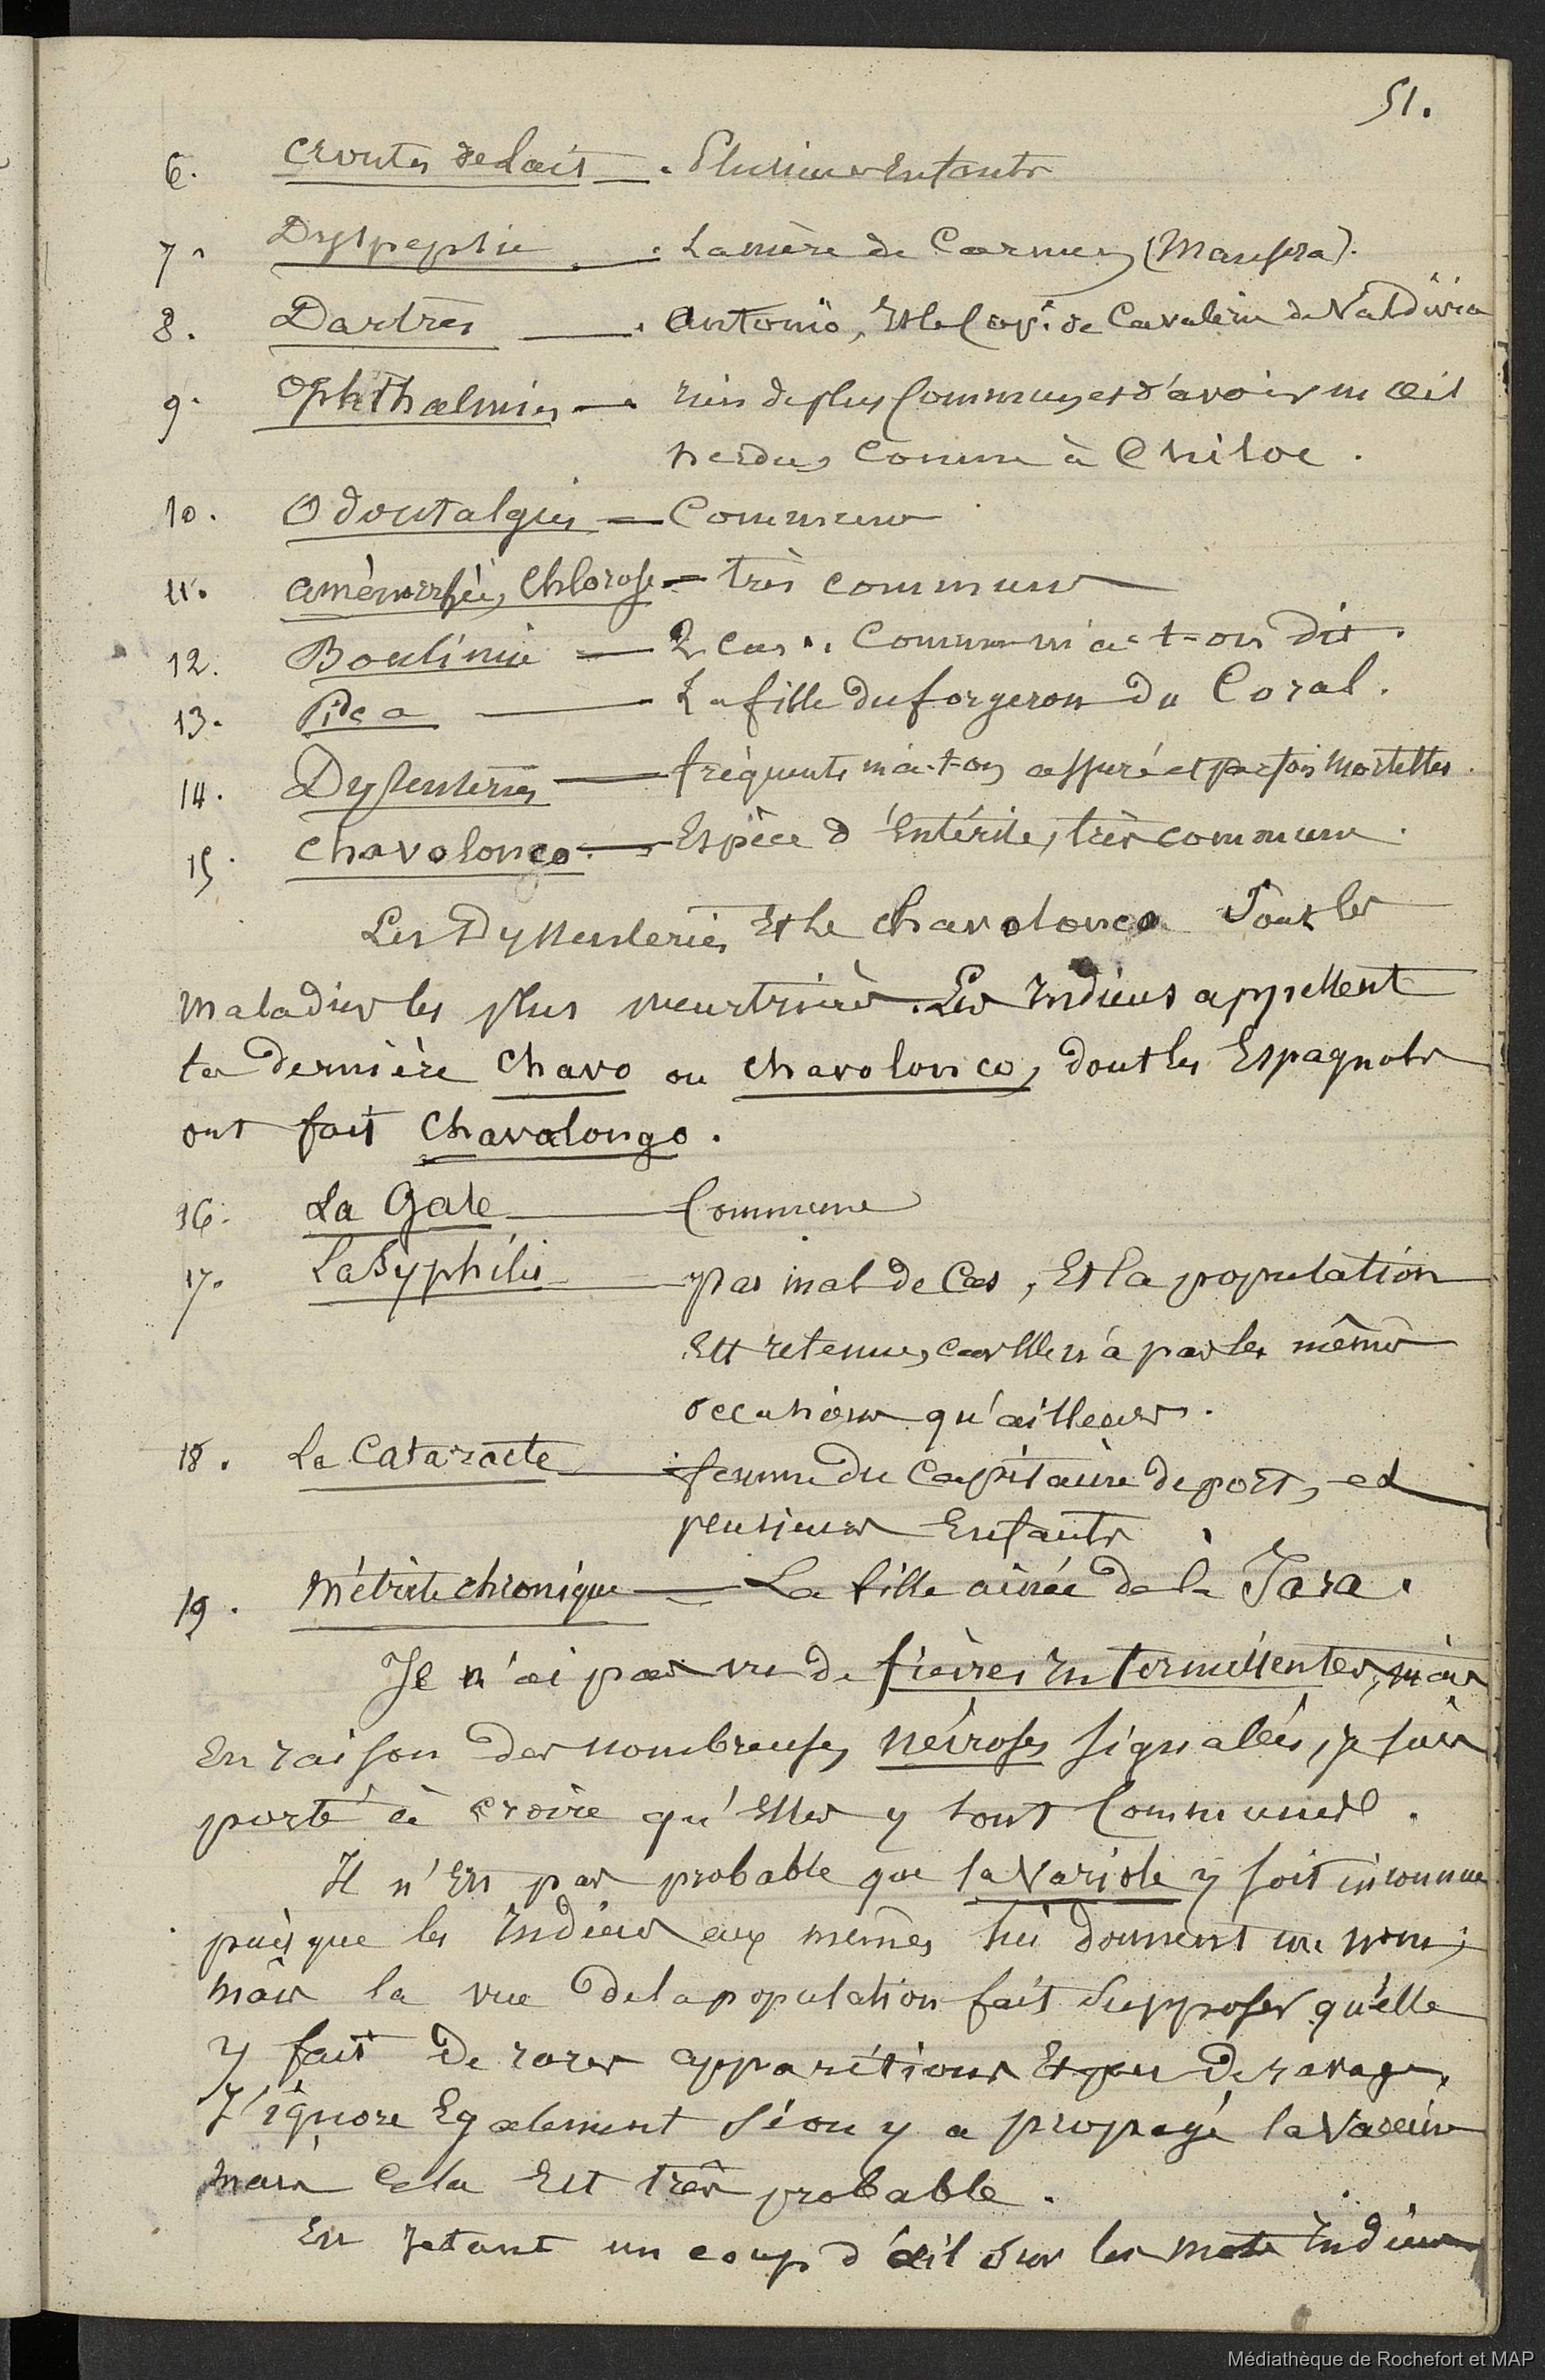 51.
6. Croutes de Lait — . Plusieurs Enfants
7. Dyspepsie — . La mère de Carmen (Mansera).
8. Dartres — . Antonio, Et le Cap.e de Cavalerie de Valdivia
9. Ophthalmies — . rien de plus Commun, et d'avoir un œil
perdu, Comme à Chiloe .
10. Odontalgies — Communes
11. Aménorrhée, Chlorose — très communes
12. Boulimie — 2 cas . Commun m'a-t-on dit .
13. Pica — La fille du forgeron du Coral .
14. Dyssenteries — fréquents m'a-t-on assuré et parfois mortelles .
15. Chavolonco . — Espèce d'Entérite, très commune .
Les Dyssenteries Et le Chavolonco sont les
maladies les plus meurtrières . Les Indiens appellent
la dernière Chavo ou Chavolonco, dont les Espagnols
ont fait Chavalongo .
16. La Gale — Commune
17. La Syphilis — pas mal de Cas, Et la population
Est retenue, car Elle n'a pas les mêmes
occasions qu'ailleurs .
18. La Cataracte — femme du Capitaine de port, et
plusieurs Enfants
19. Métrite chronique — La fille ainée de la Jara .
Je n'ai pas vu de fièvres Intermittentes, mais
En raison des nombreuses névroses signalées, je suis
porté à croire qu'Elles y sont Communes .
Il n'Est pas probable que la Variole y soit inconnue
puisque les Indiens eux mêmes lui donnent un nom ;
mais la vue de la population fait supposer qu'elle
y fait de rares apparitions Et peu de ravages,
J'ignore Egalement si on y a propagé la Vaccine
mais Cela Est très probable .
En jetant un coup d'œil sur les mots Indiens
Médiathèque de Rochefort et MAP